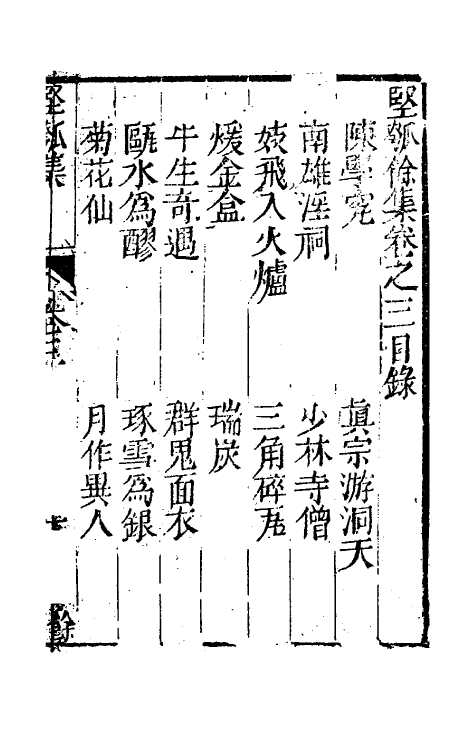 堅瓠餘集卷之三目錄
陳學究　眞宗游洞天
南雄淫祠　少林寺僧
妓飛入火爐　三角碎瓦
煖金盒　瑞炭
牛生奇遇　群鬼面衣
甌水爲醪　琢雪爲銀
菊花仙　月作異人
堅瓠集　卷三　餘